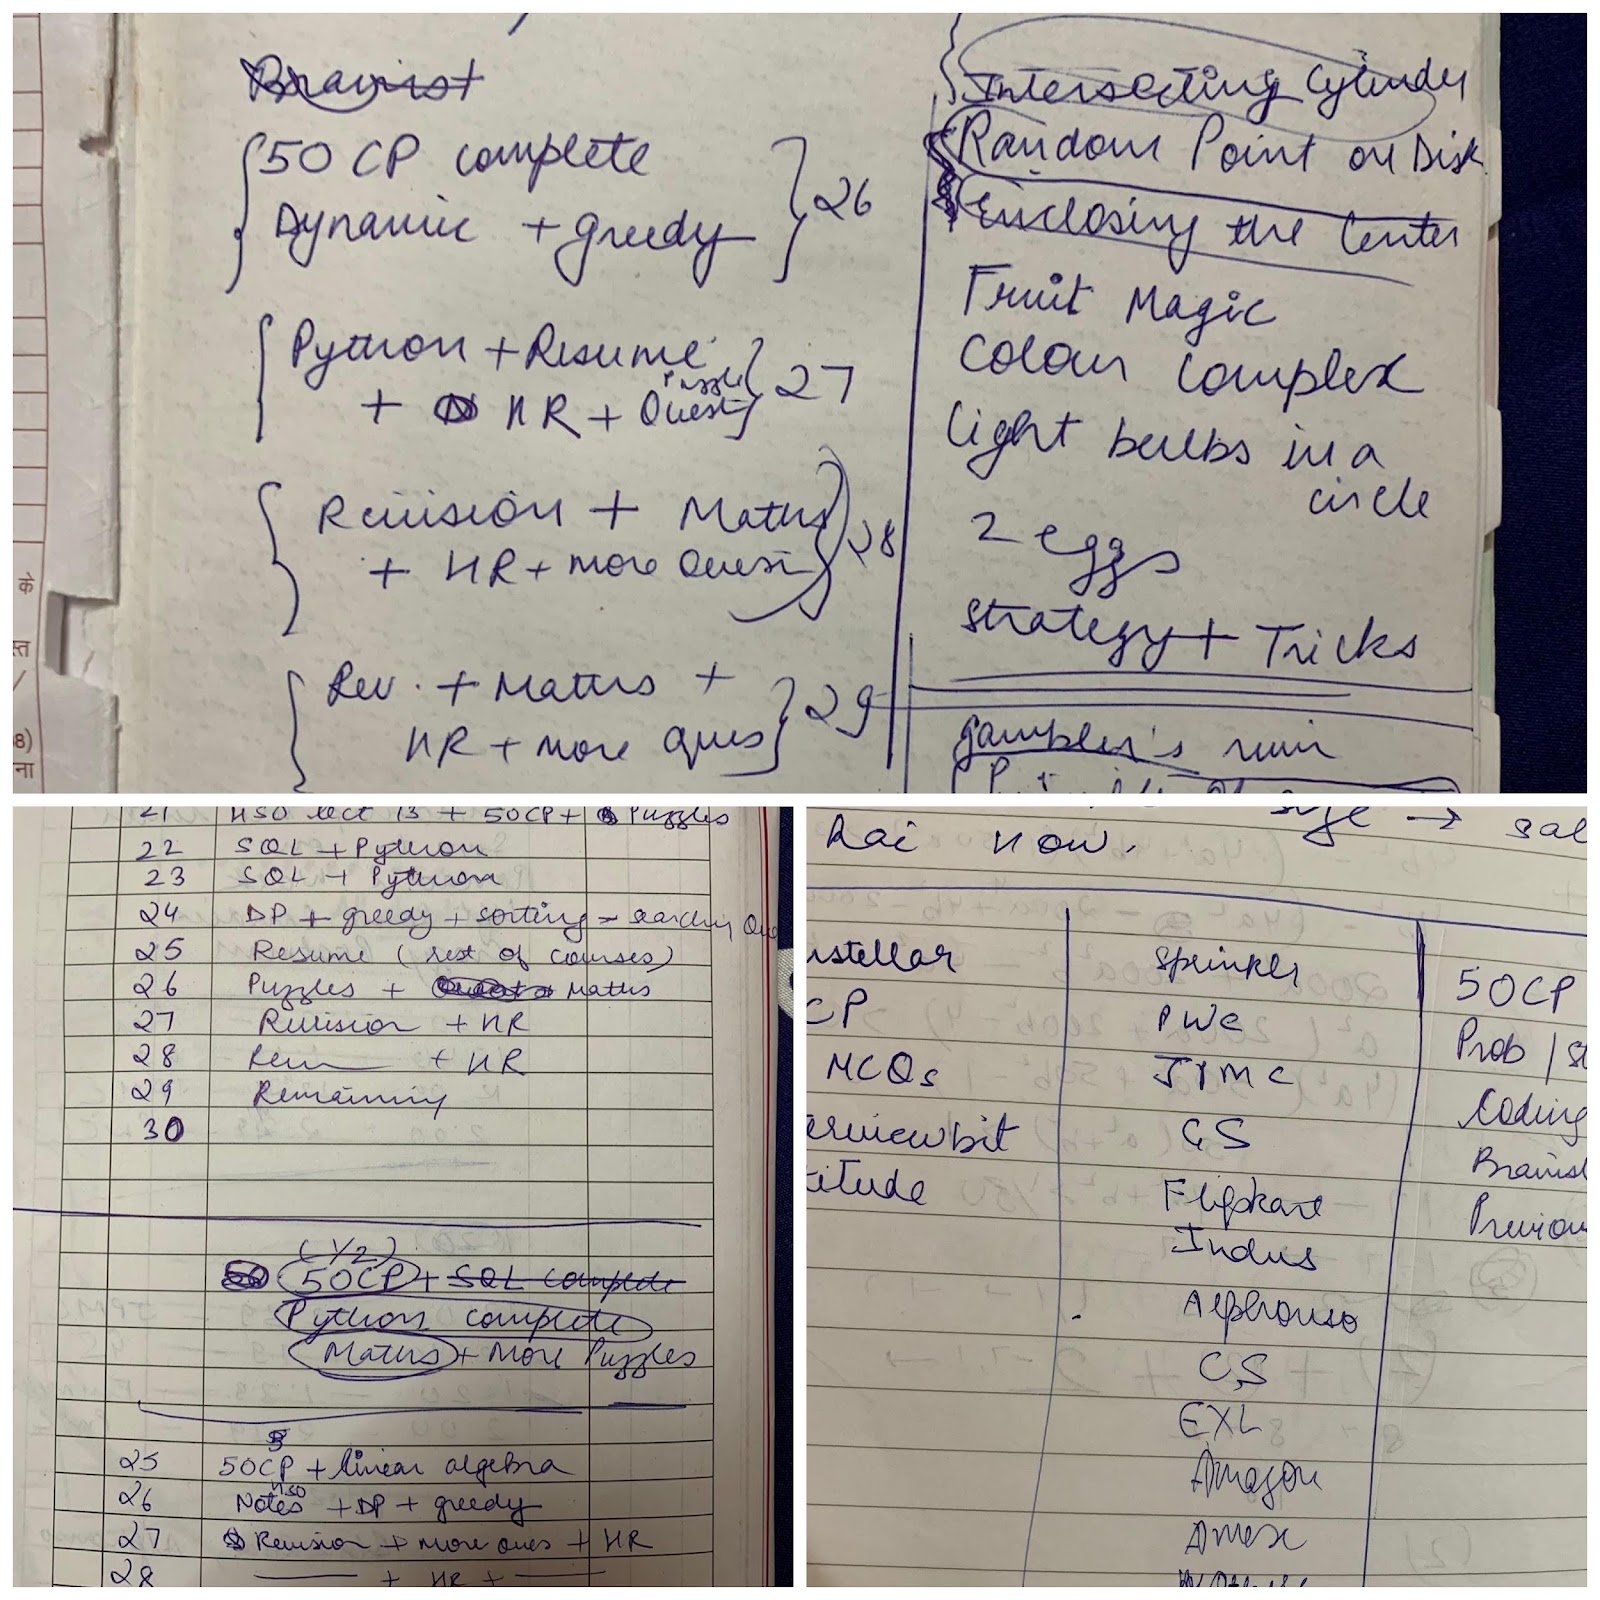 Brainst
50 CP complete
Dynamic + greedy
26
Python + Resume
+ HR + Puzzle Quest
27
Revision + Maths
+ HR + more Ques
28
Rev. + Maths +
HR + more ques
29
Intersecting Cylinder
Random Point on Disk
Enclosing the Center
Fruit Magic
Colour Complex
Light bulbs in a
circle
2 eggs
Strategy + Tricks
Gambler's ruin
के
स्त
/
8)
ना
21 HSO lect 13 + 50CP + Puzzles
22 SQL + Python
23 SQL + Python
24 DP + greedy + sorting - searching
25 Resume (rest of courses)
26 Puzzles + Maths
27 Revision + HR
28 Revi + HR
29 Remaining
30
(1/2)
50CP + SQL Complete
Python complete
Maths + More Puzzles
25 50CP + linear algebra
26 Notes HSO + DP + greedy
27 Revision + more ques + HR
28 + HR +
Rai Now.
sal
nstellar
CP
MCQs
erviewbit
titude
Sprinklr
PWC
JPMC
GS
Flipkart
Indus
Alphonso
CS
EXL
Amazon
Amex
50CP
Prob / St
Coding
Brainst
Previou